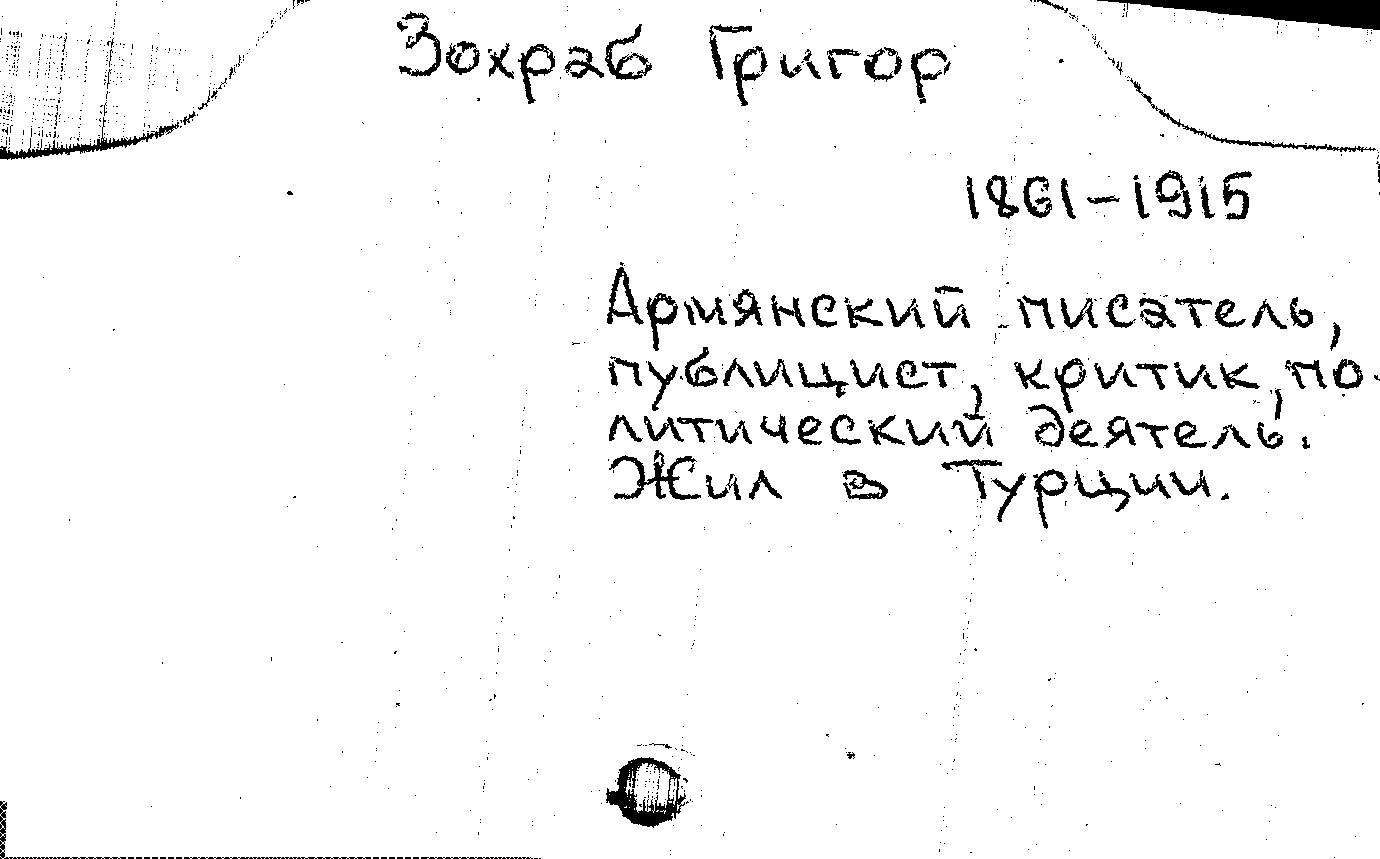 Зохраб Григор
1861-1915
Армянский писатель,
публицист, критик, по-
литический деятель.
Жил в Турции.